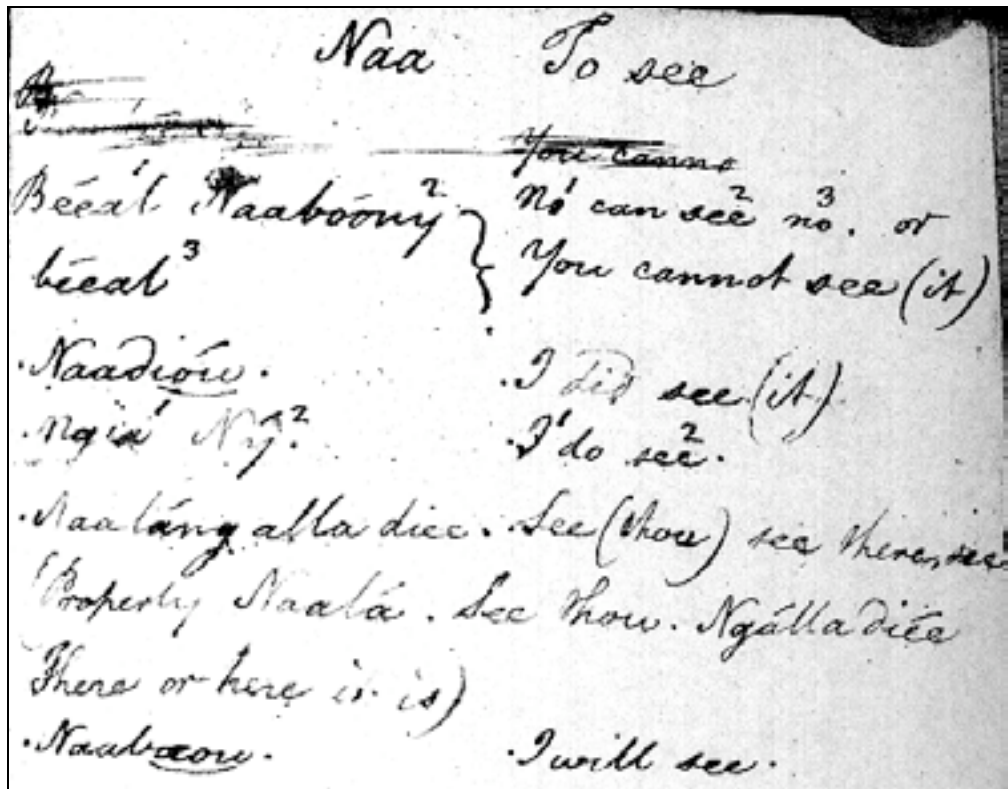 Naa To see
You canno
Bééál¹ Naabóóny² No¹ can see² no³. or
béeal³ You cannot see (it)
.Naadióu. .I did see (it)
.Ngia¹ Ny.² .I¹ do see².
.Naa láng alla diee. See (thou) see there, see
(Properly Naalá. See thou. Ngálla diée
There or here it is)
.Naabaou. .I will see.